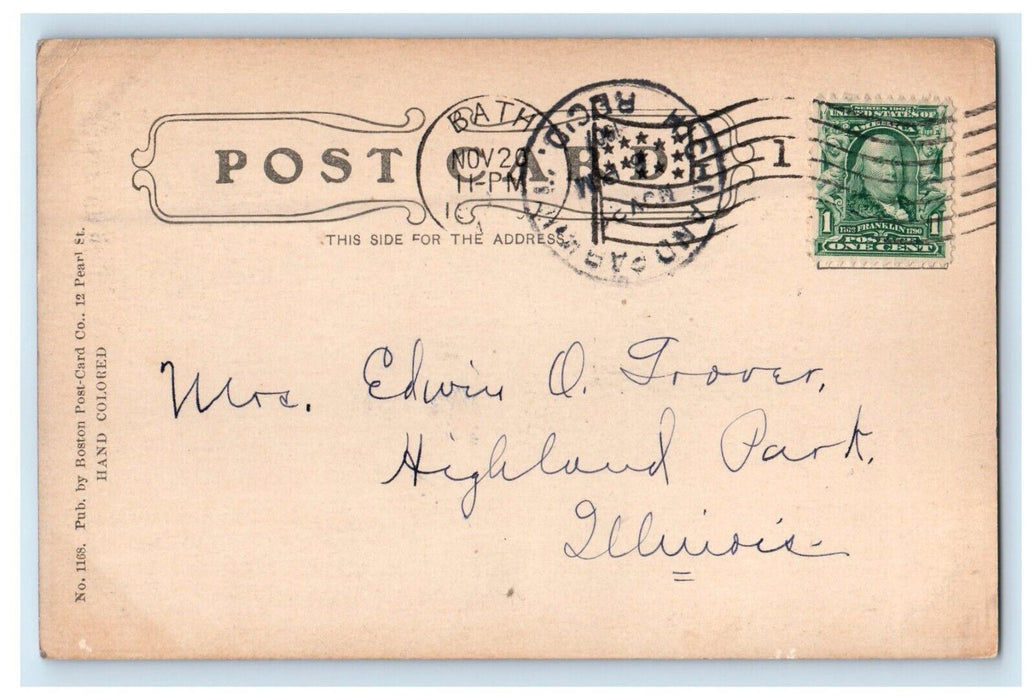 POST CARD
THIS SIDE FOR THE ADDRESS.
BATH
NOV 20
11-PM
HIGHLAND PARK, ILL.
REC'D.
NOV
1
SERIES 1902
UNITED STATES OF
AMERICA
1 1
1706 FRANKLIN 1790
POSTAGE
ONE CENT
Mrs. Edwin O. Grover,
Highland Park,
Illinois-
No. 1168. Pub. by Boston Post-Card Co.. 12 Pearl St.
HAND COLORED